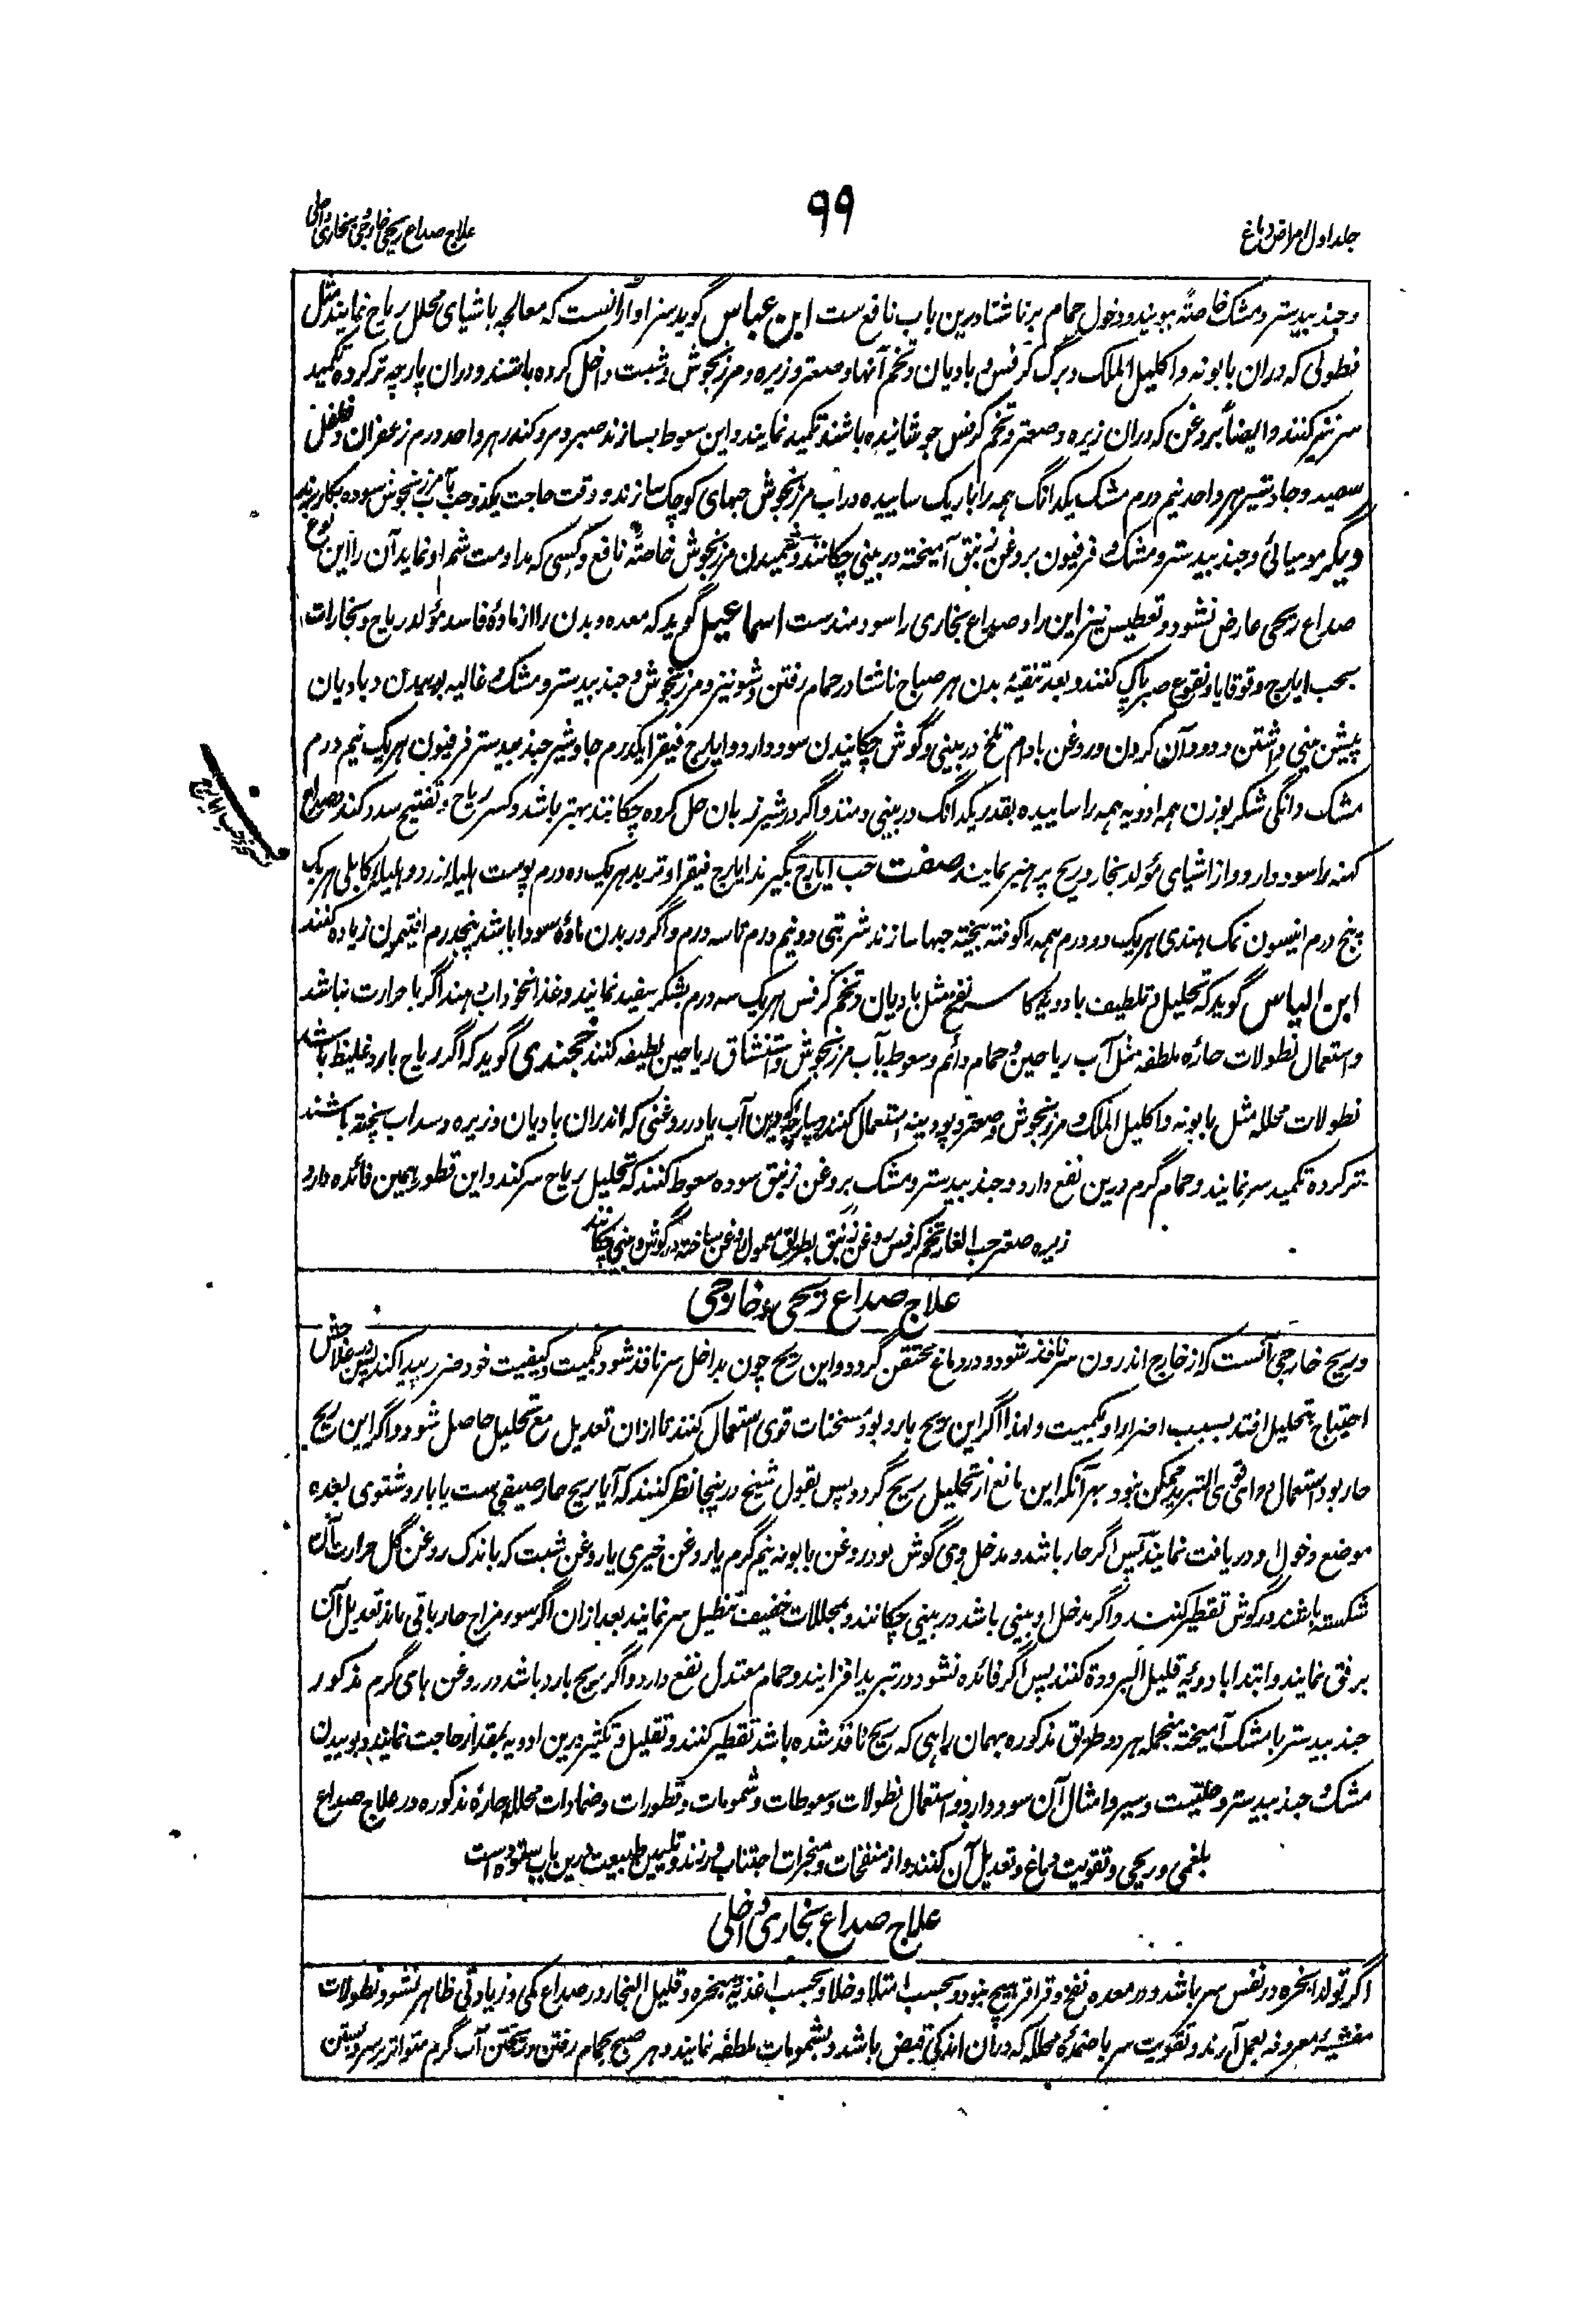 جلد اول امراض دماغ
۹۹
علاج صداع ریحی خارجی و بخاری داخلی
و جندبیدستر و مشک خاصتہ ببویند و دخول حمام بر ناشتا درین باب نافع ست ابن عباس گوید سزاوار آنست که معالجہ باشیای محلل ریاح نمایند مثل
نطولی که دران بابونہ و اکلیل الملک و برگ کرفس و بادیان و تخم آنها و صعتر و زیرہ و مرزنجوش و شبت داخل کردہ باشند و دران پارچہ تر کردہ تکمید
سر نیز کنند و ایضاً بروغن که دران زیرہ و صعتر و تخم کرفس جوشانیدہ باشند تکمید نمایند و این سعوط بسازند صبر و مر و کندر هر واحد درم زعفران و فلفل
سعید و جاوشیر هر واحد نیم درم مشک یکدانگ همہ را باریک ساییدہ در آب مرزنجوش حبهای کوچک سازند و وقت حاجت یک دو حب بآب مرزنجوش سودہ بکار برند
دیگر مومیائی و جندبیدستر و مشک و فرفیون بروغن زنبق آمیختہ در بینی چکانند و شمیدن مرزنجوش خاصتہ نافع و کسی که مداومت شم او نماید آن را این نوع
صداع ریحی عارض نشود و تعطیس نیز این را و صداع بخاری را سودمندست اسماعیل گوید که معدہ و بدن را از مادۂ فاسد مؤلد ریاح و بخارات
بحب ایارج و قوقایا و نقوع صبر پاک کنند و بعد تنقیۂ بدن هر صباح ناشتا در حمام رفتن و شونیز و مرزنجوش و جندبیدستر و مشک و غالیہ بوییدن و بادیان
پیش بینی داشتن و دود آن کردن و روغن بادام تلخ در بینی و گوش چکانیدن سود دارد و ایارج فیقرا یکدرم جاوشیر جندبیدستر فرفیون هریک نیم درم
مشک دانگی شکر بوزن همہ ادویہ همہ را ساییدہ بقدر یکدانگ در بینی دمند و اگر در شیر زنان حل کردہ چکانند بهتر باشد و کسر ریاح و تفتیح سدد کند و صداع
کهنہ را سود دارد و از اشیای مؤلد بخار و ریح پرهیز نمایند صفت حب ایارج بگیرند ایارج فیقرا و تربد هریک دہ درم پوست هلیلہ زرد و هلیلہ کابلی هریک
پنج درم انیسون نمک هندی هریک دو درم همہ را کوفتہ بیختہ حبها سازند شربتی دو نیم درم تا سہ درم و اگر در بدن مادۂ سودا باشد پنجدرم افتیمون زیادہ کنند
ابن الیاس گوید که تحلیل و تلطیف بادویۂ کاسر نفخ مثل بادیان و تخم کرفس هریک سہ درم بشکر سفید نمایند و غذا نخوداب دهند اگر با حرارت نباشد
و استعمال نطولات حارۂ ملطفہ مثل آب ریاحین و حمام دائم و سعوط بآب مرزنجوش و استنشاق ریاحین لطیفہ کنند خجندی گوید که اگر ریاح بارد غلیظ باشد
نطولات محللہ مثل بابونہ و اکلیل الملک و مرزنجوش و صعتر و پودینہ استعمال کنند و پارچہ درین آب یا در روغنی که اندران بادیان و زیرہ و سداب پختہ باشند
تر کردہ تکمید سر نمایند و حمام گرم درین نفع دارد و جندبیدستر و مشک بروغن زنبق سودہ سعوط کنند که تحلیل ریاح سر کند و این قطور همین فائدہ دارد
زیرہ صعتر حب الغار تخم کرفس روغن زنبق بطریق معمول روغن ساختہ در گوش و بینی چکانند
علاج صداع ریحی خارجی
و ریح خارجی آنست که از خارج اندرون سر نافذ شود و در دماغ محتقن گردد و این ریح چون بداخل سر نافذ شود بکمیت و کیفیت خود ضرر پیدا کند پس در علاجش
احتیاج بتحلیل افتد بسبب اضرار او بکمیت و لهذا اگر این ریح بارد بود مسخنات قوی استعمال کنند تا ازان تعدیل مع تحلیل حاصل شود و اگر این ریح
حار بود استعمال دوائی قوی التبرید ممکن نبود بهر آنکه این مانع از تحلیل ریح گردد پس بقول شیخ درینجا نظر کنند که آیا ریح حار صیفی ست یا بارد شتوی بعدہ
موضع دخول او دریافت نمایند پس اگر حار باشد و مدخل وی گوش بود روغن بابونہ نیم گرم یا روغن خیری یا روغن شبت که باندک روغن گل حرارت آن
شکستہ باشند در گوش تقطیر کنند و اگر مدخل او بینی باشد در بینی چکانند و بمحللات خفیفہ تنطیل سر نمایند بعد ازان اگر سوء مزاج حار باقی ماند تعدیل آن
برفق نمایند و ابتدا بادویۂ قلیل البرودة کنند پس اگر فائدہ نشود در تبرید افزایند و حمام معتدل نفع دارد و اگر ریح بارد باشد در روغن های گرم مذکور
جندبیدستر با مشک آمیختہ منجملہ هر دو طریق مذکورہ بهمان راهی که ریح نافذ شدہ باشد تقطیر کنند و تقلیل و تکثیر درین ادویہ بمقدار حاجت نمایند و بوییدن
مشک و جندبیدستر و حلتیت و سیر و امثال آن سود دارد و استعمال نطولات و سعوطات و شمومات و قطورات و ضمادات محللہ حارۂ مذکورہ در علاج صداع
بلغمی و ریحی و تقویت دماغ و تعدیل آن کنند و از منفخات و مبخرات اجتناب ورزند و تلیین طبیعت درین باب ستودہ است
علاج صداع بخاری داخلی
اگر تولد ابخرہ در نفس سر باشد و در معدہ نفخ و قراقر هیچ نبود و بحسب امتلا و خلا و بحسب اغذیۂ مبخرہ و قلیل البخار در صداع کمی و زیادتی ظاهر نشود نطولات
مفشیۂ معروفہ بعمل آرند و تقویت سر باضمدۂ محللہ که دران اندکی قبض باشد و بشمومات ملطفہ نمایند و هر صبح بحمام رفتن و ریختن آب گرم متواتر بر سر و بستن